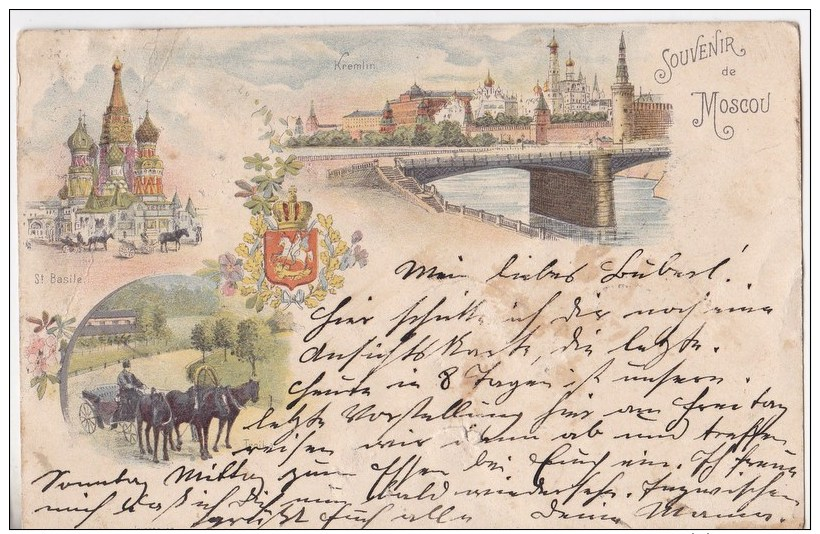 Kremlin
SOUVENIR
de
MOSCOU
St Basile
Mein liebes Buberl!
hier schicke ich dir noch eine
Ansichtskarte, die letzte.
heute in 8 Tagen ist unsere
letzte Vorstellung hier am Freitag
reisen wir dann ab und treffen
Sonntag Mittag zum Essen bei Euch ein. Ich freue
mich daß ich Dich nun bald wiedersehe. Inzwischen
grüßt Euch alle Deine Mama.